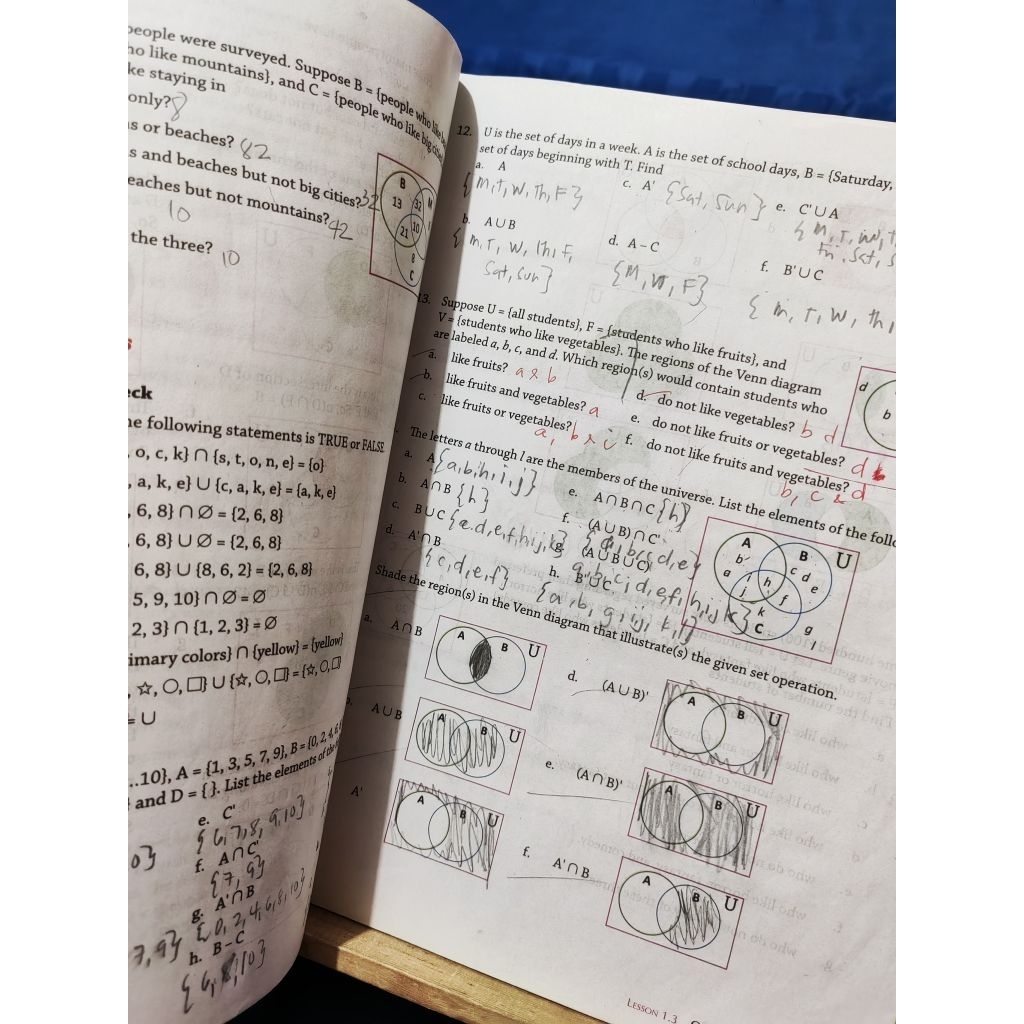 people were surveyed. Suppose B = {people who like
ho like mountains}, and C = {people who like big cities
ke staying in
only? 8
s or beaches? 82
s and beaches but not big cities? 32
eaches but not mountains? 42
10
the three? 10
B
M
13
32
21
10
8
C
eck
he following statements is TRUE or FALSE
, o, c, k} ∩ {s, t, o, n, e} = {o}
, a, k, e} ∪ {c, a, k, e} = {a, k, e}
, 6, 8} ∩ ∅ = {2, 6, 8}
, 6, 8} ∪ ∅ = {2, 6, 8}
6, 8} ∪ {8, 6, 2} = {2, 6, 8}
5, 9, 10} ∩ ∅ = ∅
2, 3} ∩ {1, 2, 3} = ∅
imary colors} ∩ {yellow} = {yellow}
, ☆, ○, □} ∪ {☆, ○, □} = {☆, ○, □}
= U
...10}, A = {1, 3, 5, 7, 9}, B = {0, 2, 4, 6,
and D = { }. List the elements of the
e. C'
{6, 7, 8, 9, 10}
0}
f. A∩C'
{7, 9}
g. A'∩B
{0, 2, 4, 6, 8, 10}
7, 9}
h. B – C
{6, 8, 10}
12. U is the set of days in a week. A is the set of school days, B = {Saturday,
set of days beginning with T. Find
a. A
{M, T, W, Th, F}
c. A' {Sat, Sun}
e. C'∪A
{M, T, W, T
Fri, Sat, S
b. A∪B
{M, T, W, Th, F,
Sat, Sun}
d. A – C
{M, W, F}
f. B'∪C
{M, T, W, Th,
13. Suppose U = {all students}, F = {students who like fruits}, and
V = {students who like vegetables}. The regions of the Venn diagram
are labeled a, b, c, and d. Which region(s) would contain students who
a. like fruits? a & b
b. like fruits and vegetables? a
c. like fruits or vegetables?
a, b & c
d. do not like vegetables? b d
e. do not like fruits or vegetables? d
f. do not like fruits and vegetables?
b, c & d
d
b
The letters a through l are the members of the universe. List the elements of the follo
a. A {a, b, h, i, j}
b. A∩B {h}
c. B∪C
d. A'∩B
{c, d, e, f}
e. A∩B∩C {h}
f. (A∪B)∩C'
g. (A∪B∪C)'
h. B'∪C
A
B
U
b
a
c d
e
i
h
j
f
k
C
g
l
Shade the region(s) in the Venn diagram that illustrate(s) the given set operation.
a. A∩B
A B U
d. (A∪B)'
A B U
A∪B
A B U
e. (A∩B)'
A B U
A'
A B U
f. A'∩B
A B U
LESSON 1.3